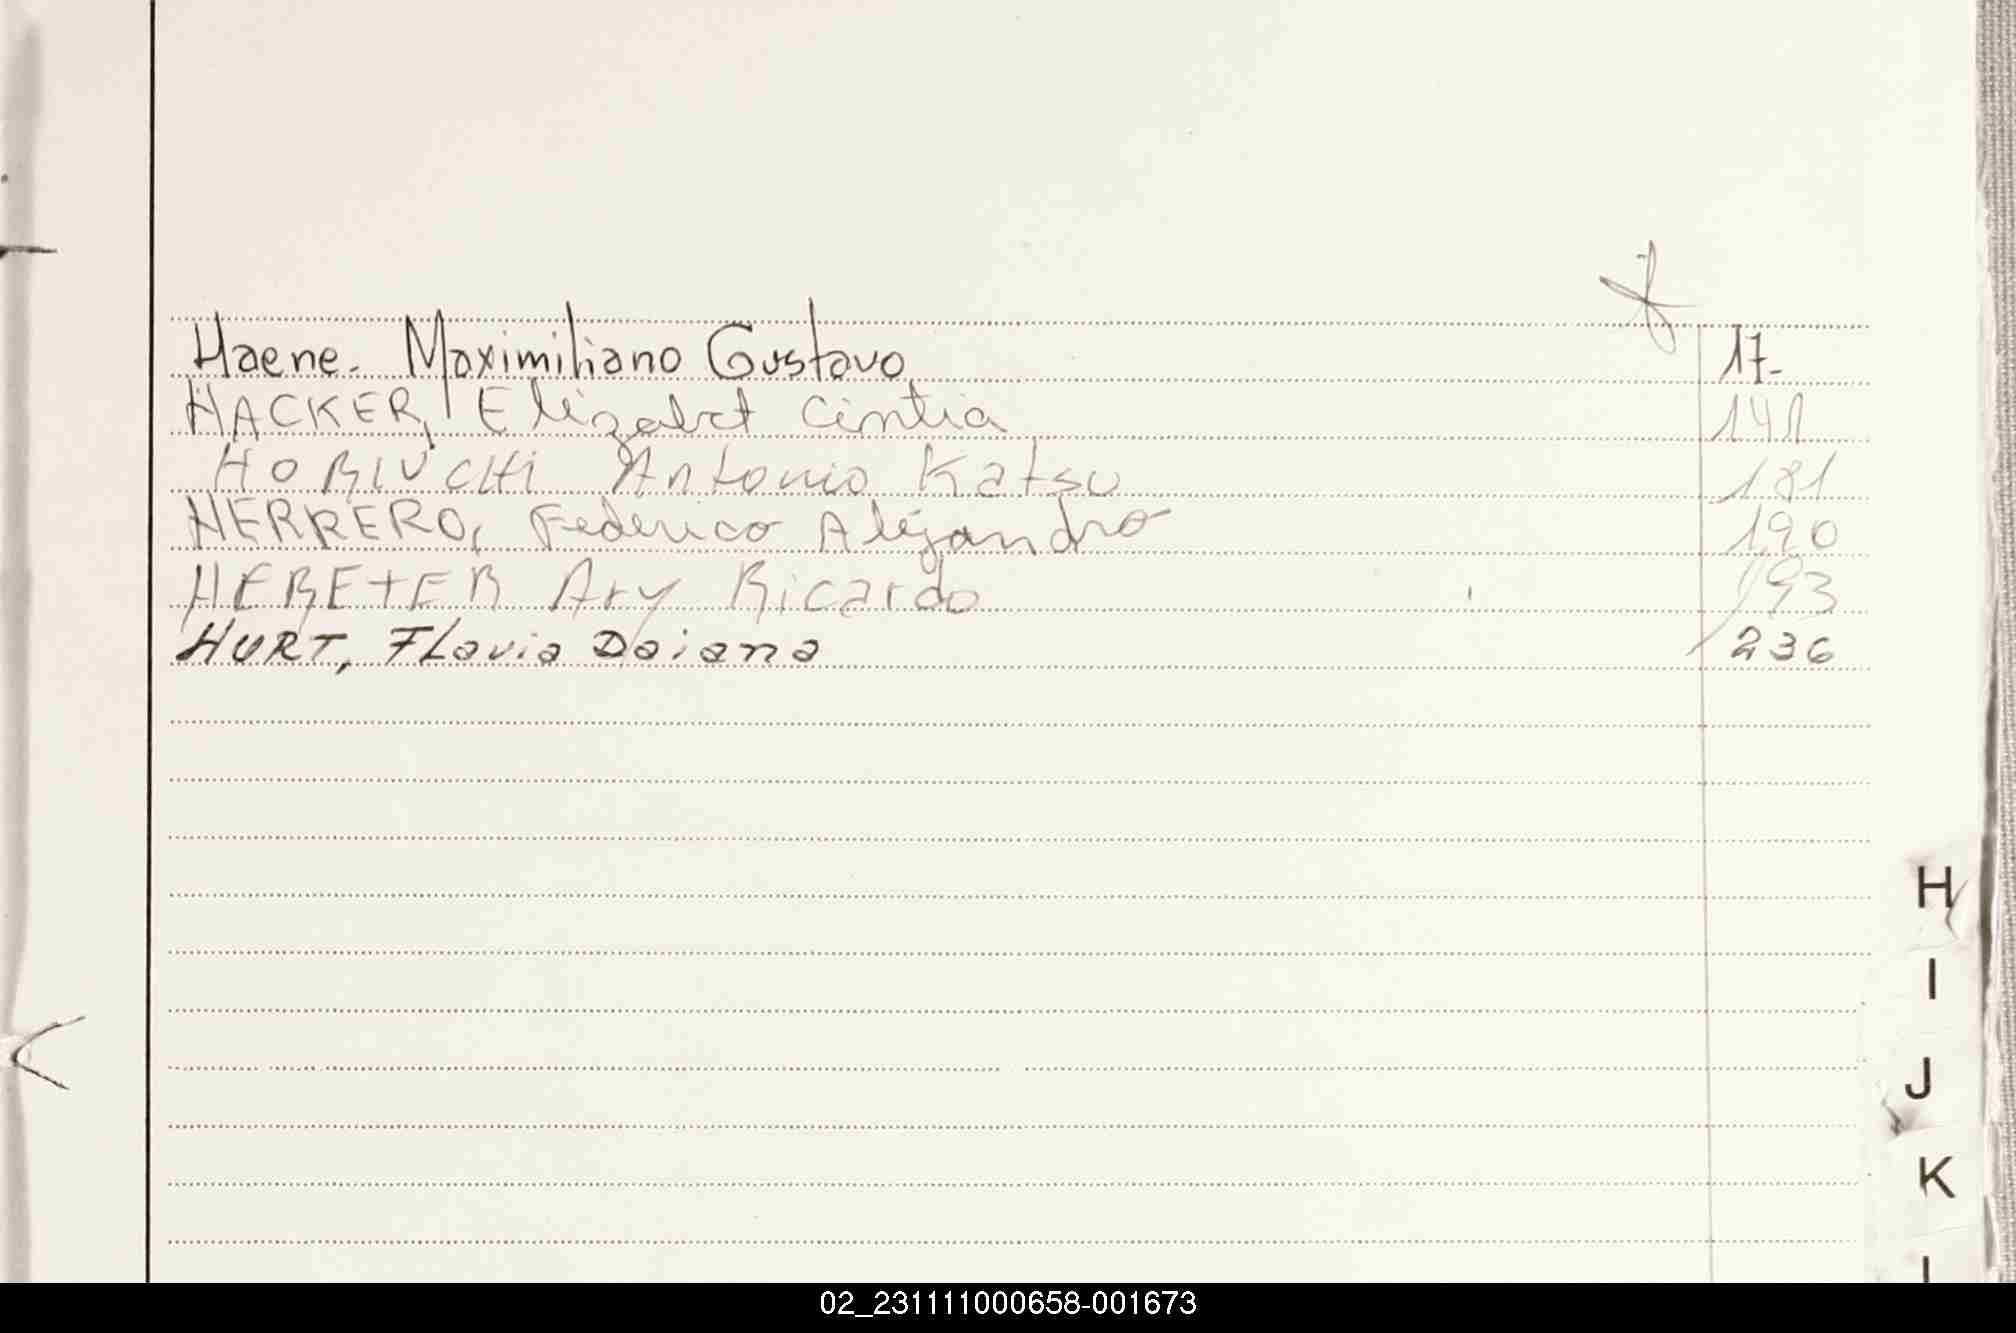 f
Haene. Maximiliano Gustavo 17-
HACKER, Elizabet Cintia 141
HORIUCHI Antonio Katsu 181
HERRERO, Federico Alejandro 190
HEBETER Ary Ricardo 193
HURT, Flavia Daiana 236
H
I
J
K
02_231111000658-001673